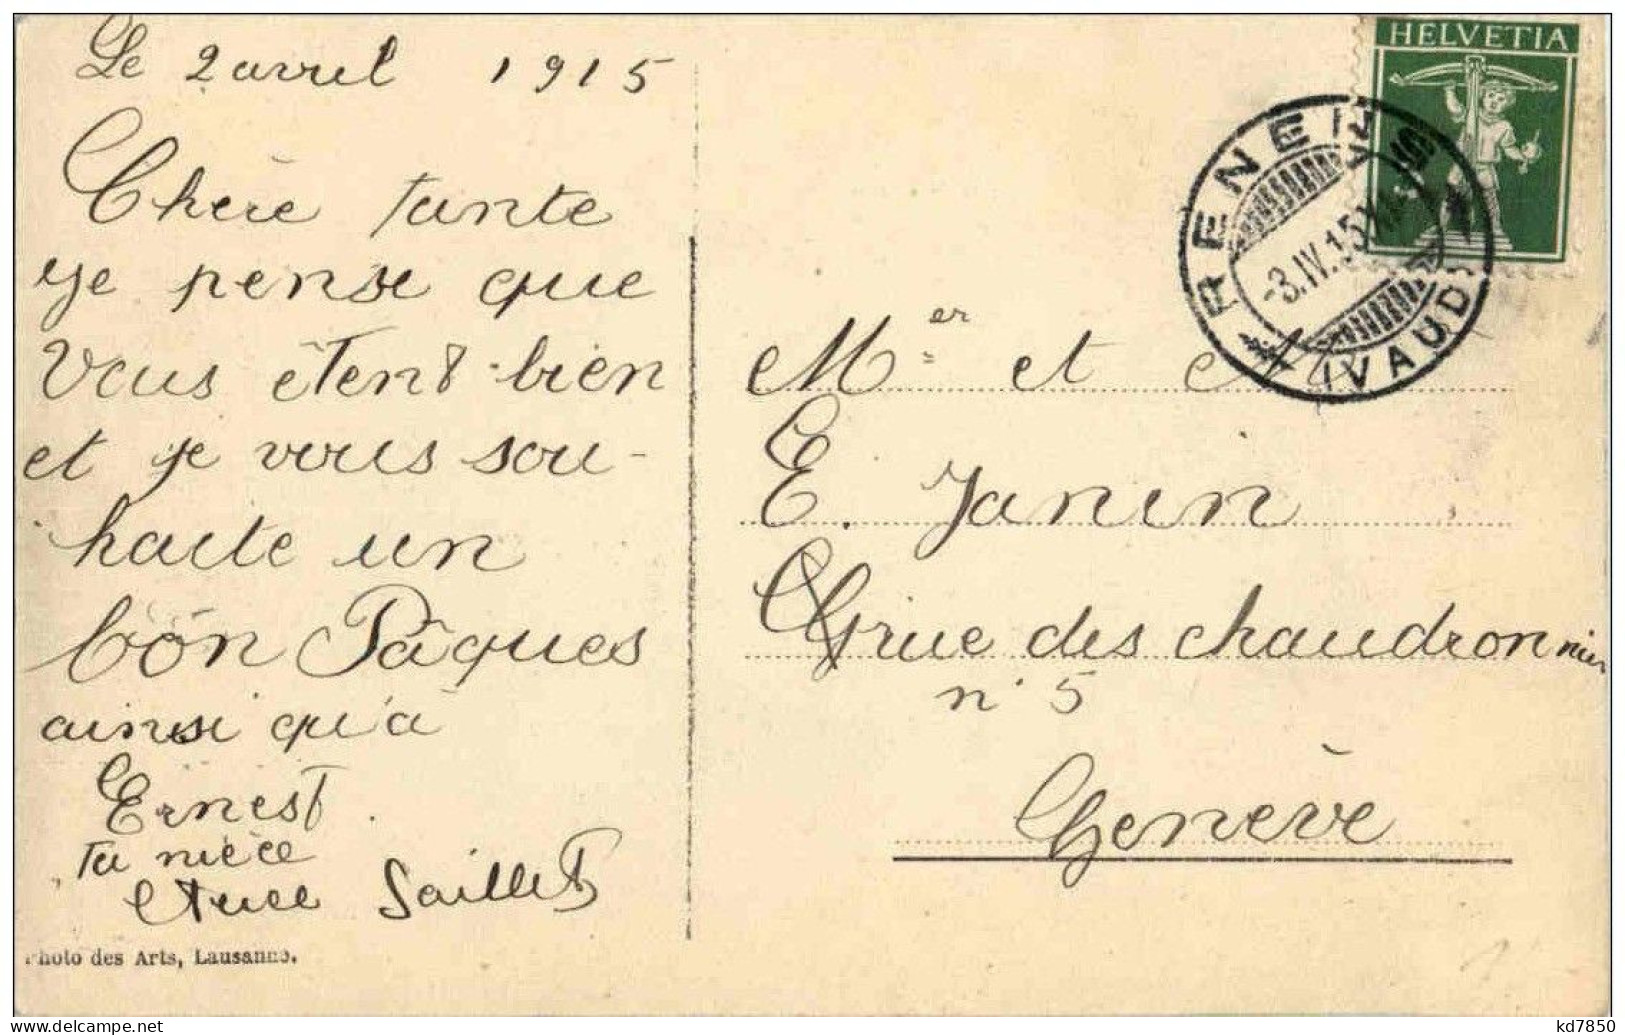 Le 2 avril 1915
Chère tante
je pense que
vous êtent bien
et je vous sou-
haite un
bon Pâques
ainsi qu'à
Ernest.
Ta nièce
Saillet
Photo des Arts, Lausanne.
HELVETIA
RENENS
-3.IV.15
(VAUD)
Mer et M
E. Janin
rue des chaudronnier
n° 5
Genève
kd7850